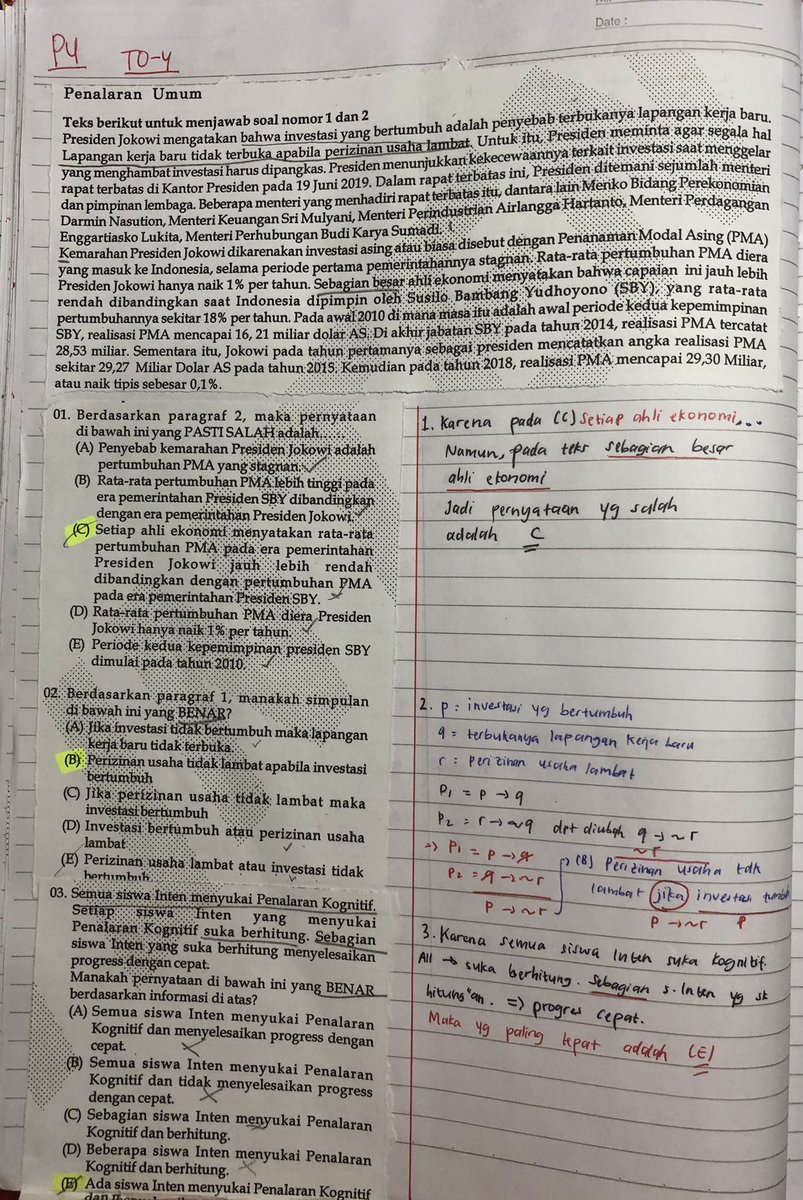 Date :
PU TO-4
Penalaran Umum
Teks berikut untuk menjawab soal nomor 1 dan 2
Presiden Jokowi mengatakan bahwa investasi yang bertumbuh adalah penyebab terbukanya lapangan kerja baru.
Lapangan kerja baru tidak terbuka apabila perizinan usaha lambat. Untuk itu, Presiden meminta agar segala hal
yang menghambat investasi harus dipangkas. Presiden menunjukkan kekecewaannya terkait investasi saat menggelar
rapat terbatas di Kantor Presiden pada 19 Juni 2019. Dalam rapat terbatas ini, Presiden ditemani sejumlah menteri
dan pimpinan lembaga. Beberapa menteri yang menhadiri rapat terbatas itu, dantara lain Menko Bidang Perekonomian
Darmin Nasution, Menteri Keuangan Sri Mulyani, Menteri Perindustrian Airlangga Hartanto, Menteri Perdagangan
Enggartiasko Lukita, Menteri Perhubungan Budi Karya Sumadi.
Kemarahan Presiden Jokowi dikarenakan investasi asing atau biasa disebut dengan Penanaman Modal Asing (PMA)
yang masuk ke Indonesia, selama periode pertama pemerintahannya stagnan. Rata-rata pertumbuhan PMA diera
Presiden Jokowi hanya naik 1% per tahun. Sebagian besar ahli ekonomi menyatakan bahwa capaian ini jauh lebih
rendah dibandingkan saat Indonesia dipimpin oleh Susilo Bambang Yudhoyono (SBY), yang rata-rata
pertumbuhannya sekitar 18% per tahun. Pada awal 2010 di mana masa itu adalah awal periode kedua kepemimpinan
SBY, realisasi PMA mencapai 16, 21 miliar dolar AS. Di akhir jabatan SBY pada tahun 2014, realisasi PMA tercatat
28,53 miliar. Sementara itu, Jokowi pada tahun pertamanya sebagai presiden mencatatkan angka realisasi PMA
sekitar 29,27 Miliar Dolar AS pada tahun 2015. Kemudian pada tahun 2018, realisasi PMA mencapai 29,30 Miliar,
atau naik tipis sebesar 0,1%.
01. Berdasarkan paragraf 2, maka pernyataan
di bawah ini yang PASTI SALAH adalah.....
(A) Penyebab kemarahan Presiden Jokowi adalah
pertumbuhan PMA yang stagnan.
(B) Rata-rata pertumbuhan PMA lebih tinggi pada
era pemerintahan Presiden SBY dibandingkan
dengan era pemerintahan Presiden Jokowi.
(C) Setiap ahli ekonomi menyatakan rata-rata
pertumbuhan PMA pada era pemerintahan
Presiden Jokowi jauh lebih rendah
dibandingkan dengan pertumbuhan PMA
pada era pemerintahan Presiden SBY.
(D) Rata-rata pertumbuhan PMA diera Presiden
Jokowi hanya naik 1% per tahun.
(E) Periode kedua kepemimpinan presiden SBY
dimulai pada tahun 2010.
1. Karena pada (C) Setiap ahli ekonomi...
Namun, pada teks sebagian besar
ahli ekonomi
Jadi pernyataan yg salah
adalah C
02. Berdasarkan paragraf 1, manakah simpulan
di bawah ini yang BENAR?
(A) Jika investasi tidak bertumbuh maka lapangan
kerja baru tidak terbuka.
(B) Perizinan usaha tidak lambat apabila investasi
bertumbuh
(C) Jika perizinan usaha tidak lambat maka
investasi bertumbuh
(D) Investasi bertumbuh atau perizinan usaha
lambat
(E) Perizinan usaha lambat atau investasi tidak
bertumbuh.
2. p = investasi yg bertumbuh
q = terbukanya lapangan kerja baru
r = perizinan usaha lambat
P1 = p → q
P2 = r → ~q dpt diubah q → ~r
=> P1 = p → q
P2 = q → ~r
p → ~r
~r
(B) Perizinan usaha tdk
lambat jika investasi tumbuh
p → ~r p
03. Semua siswa Inten menyukai Penalaran Kognitif.
Setiap siswa Inten yang menyukai
Penalaran Kognitif suka berhitung. Sebagian
siswa Inten yang suka berhitung menyelesaikan
progress dengan cepat.
Manakah pernyataan di bawah ini yang BENAR
berdasarkan informasi di atas?
(A) Semua siswa Inten menyukai Penalaran
Kognitif dan menyelesaikan progress dengan
cepat.
(B) Semua siswa Inten menyukai Penalaran
Kognitif dan tidak menyelesaikan progress
dengan cepat.
(C) Sebagian siswa Inten menyukai Penalaran
Kognitif dan berhitung.
(D) Beberapa siswa Inten menyukai Penalaran
Kognitif dan berhitung.
(E) Ada siswa Inten menyukai Penalaran Kognitif
3. Karena semua siswa Inten suka kognitif.
All → suka berhitung. Sebagian s. Inten yg sk
hitung"an. => progres cepat.
Maka yg paling tepat adalah (E)